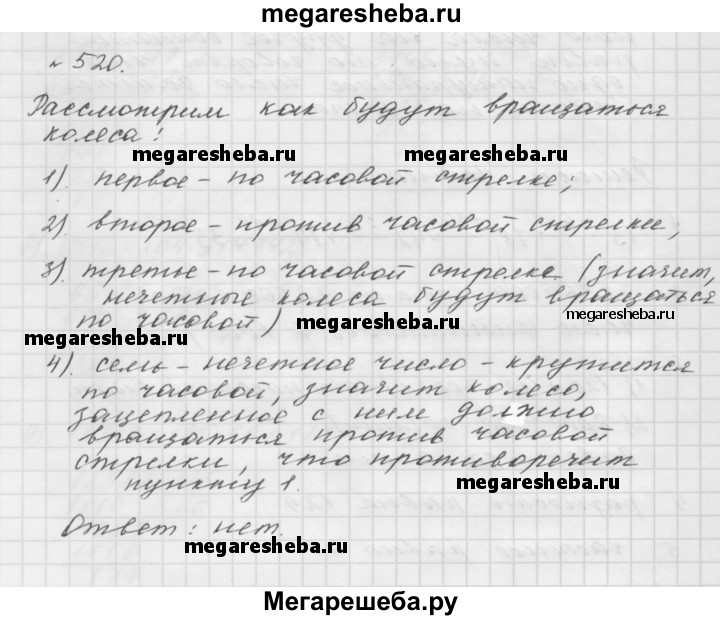 megaresheba.ru
№ 520.
Рассмотрим как будут вращаться
колеса:
megaresheba.ru megaresheba.ru
1). первое – по часовой стрелке;
2). второе – против часовой стрелке,
3). третье – по часовой стрелке (значит,
нечетные колеса будут вращаться
по часовой)
megaresheba.ru megaresheba.ru megaresheba.ru
4). семь – нечетное число – крутится
по часовой, значит колесо,
зацепленное с ним должно
вращаться против часовой
стрелки, что противоречит
пункту 1.
megaresheba.ru
Ответ: нет.
megaresheba.ru megaresheba.ru
Мегарешеба.ру